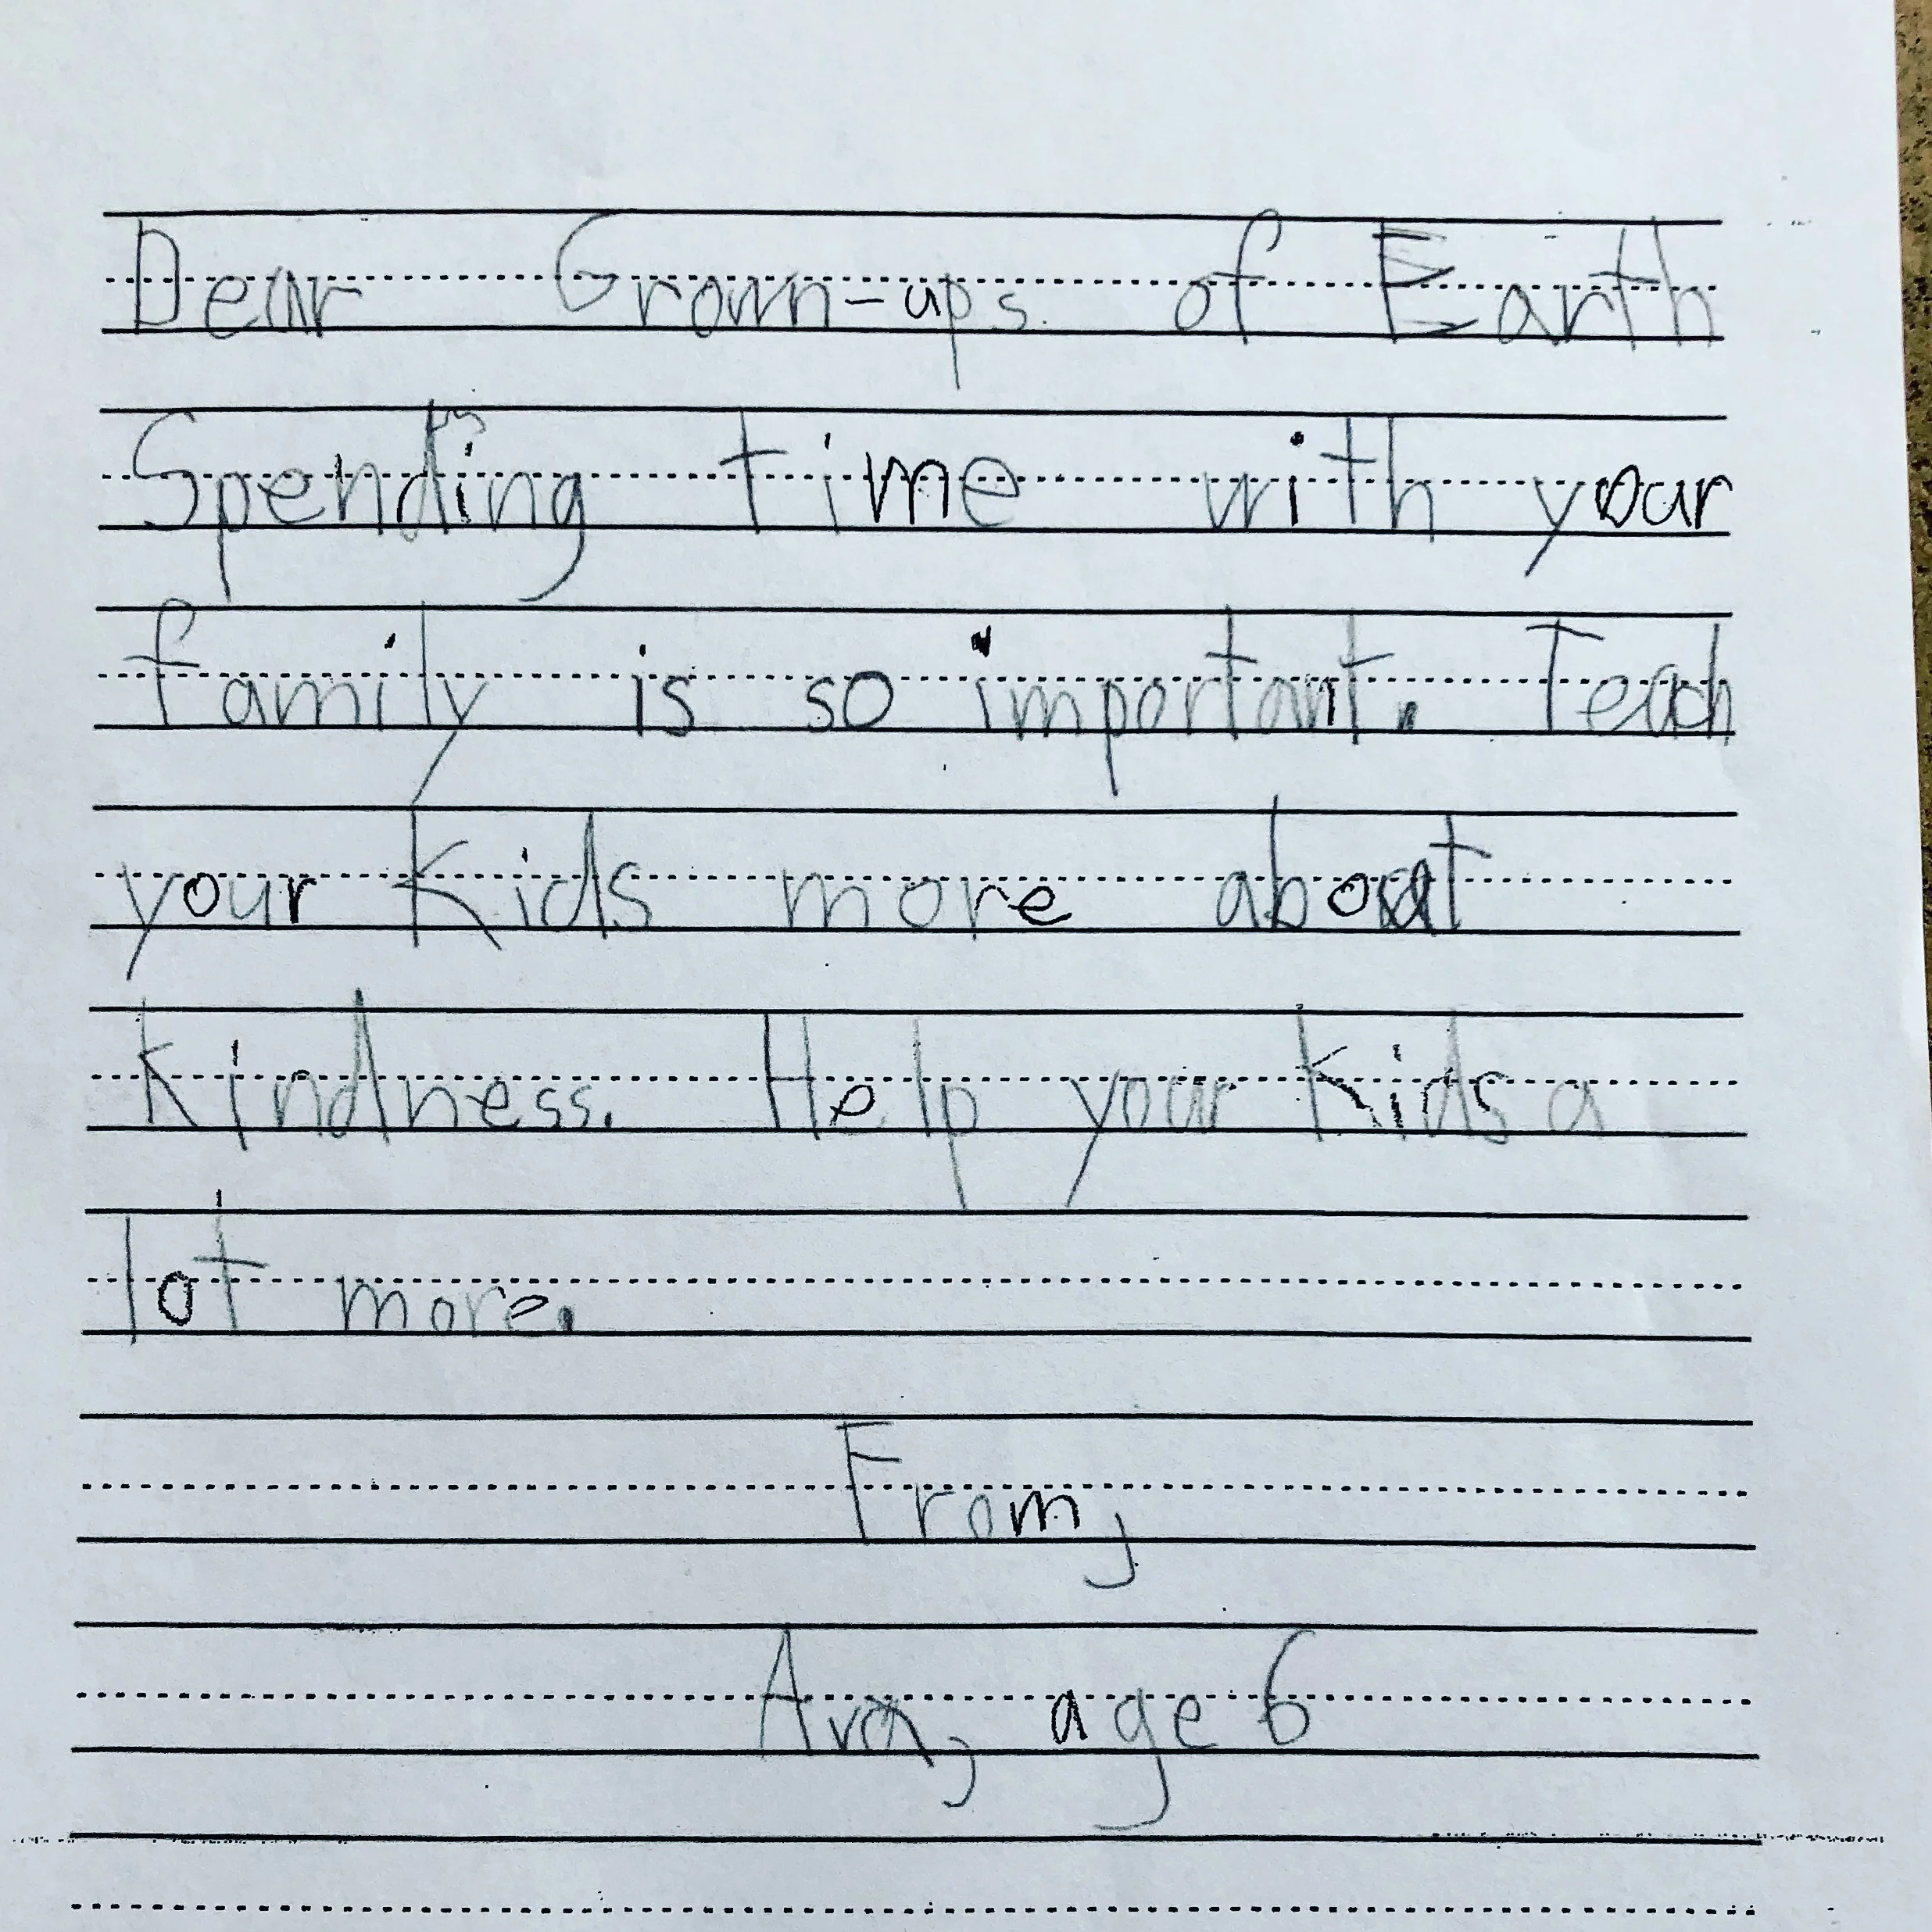 Dear Grown-ups of Earth
Spending time with your
family is so important. Teach
your Kids more about
Kindness. Help your Kids a
lot more.
From,
Ava, age 6